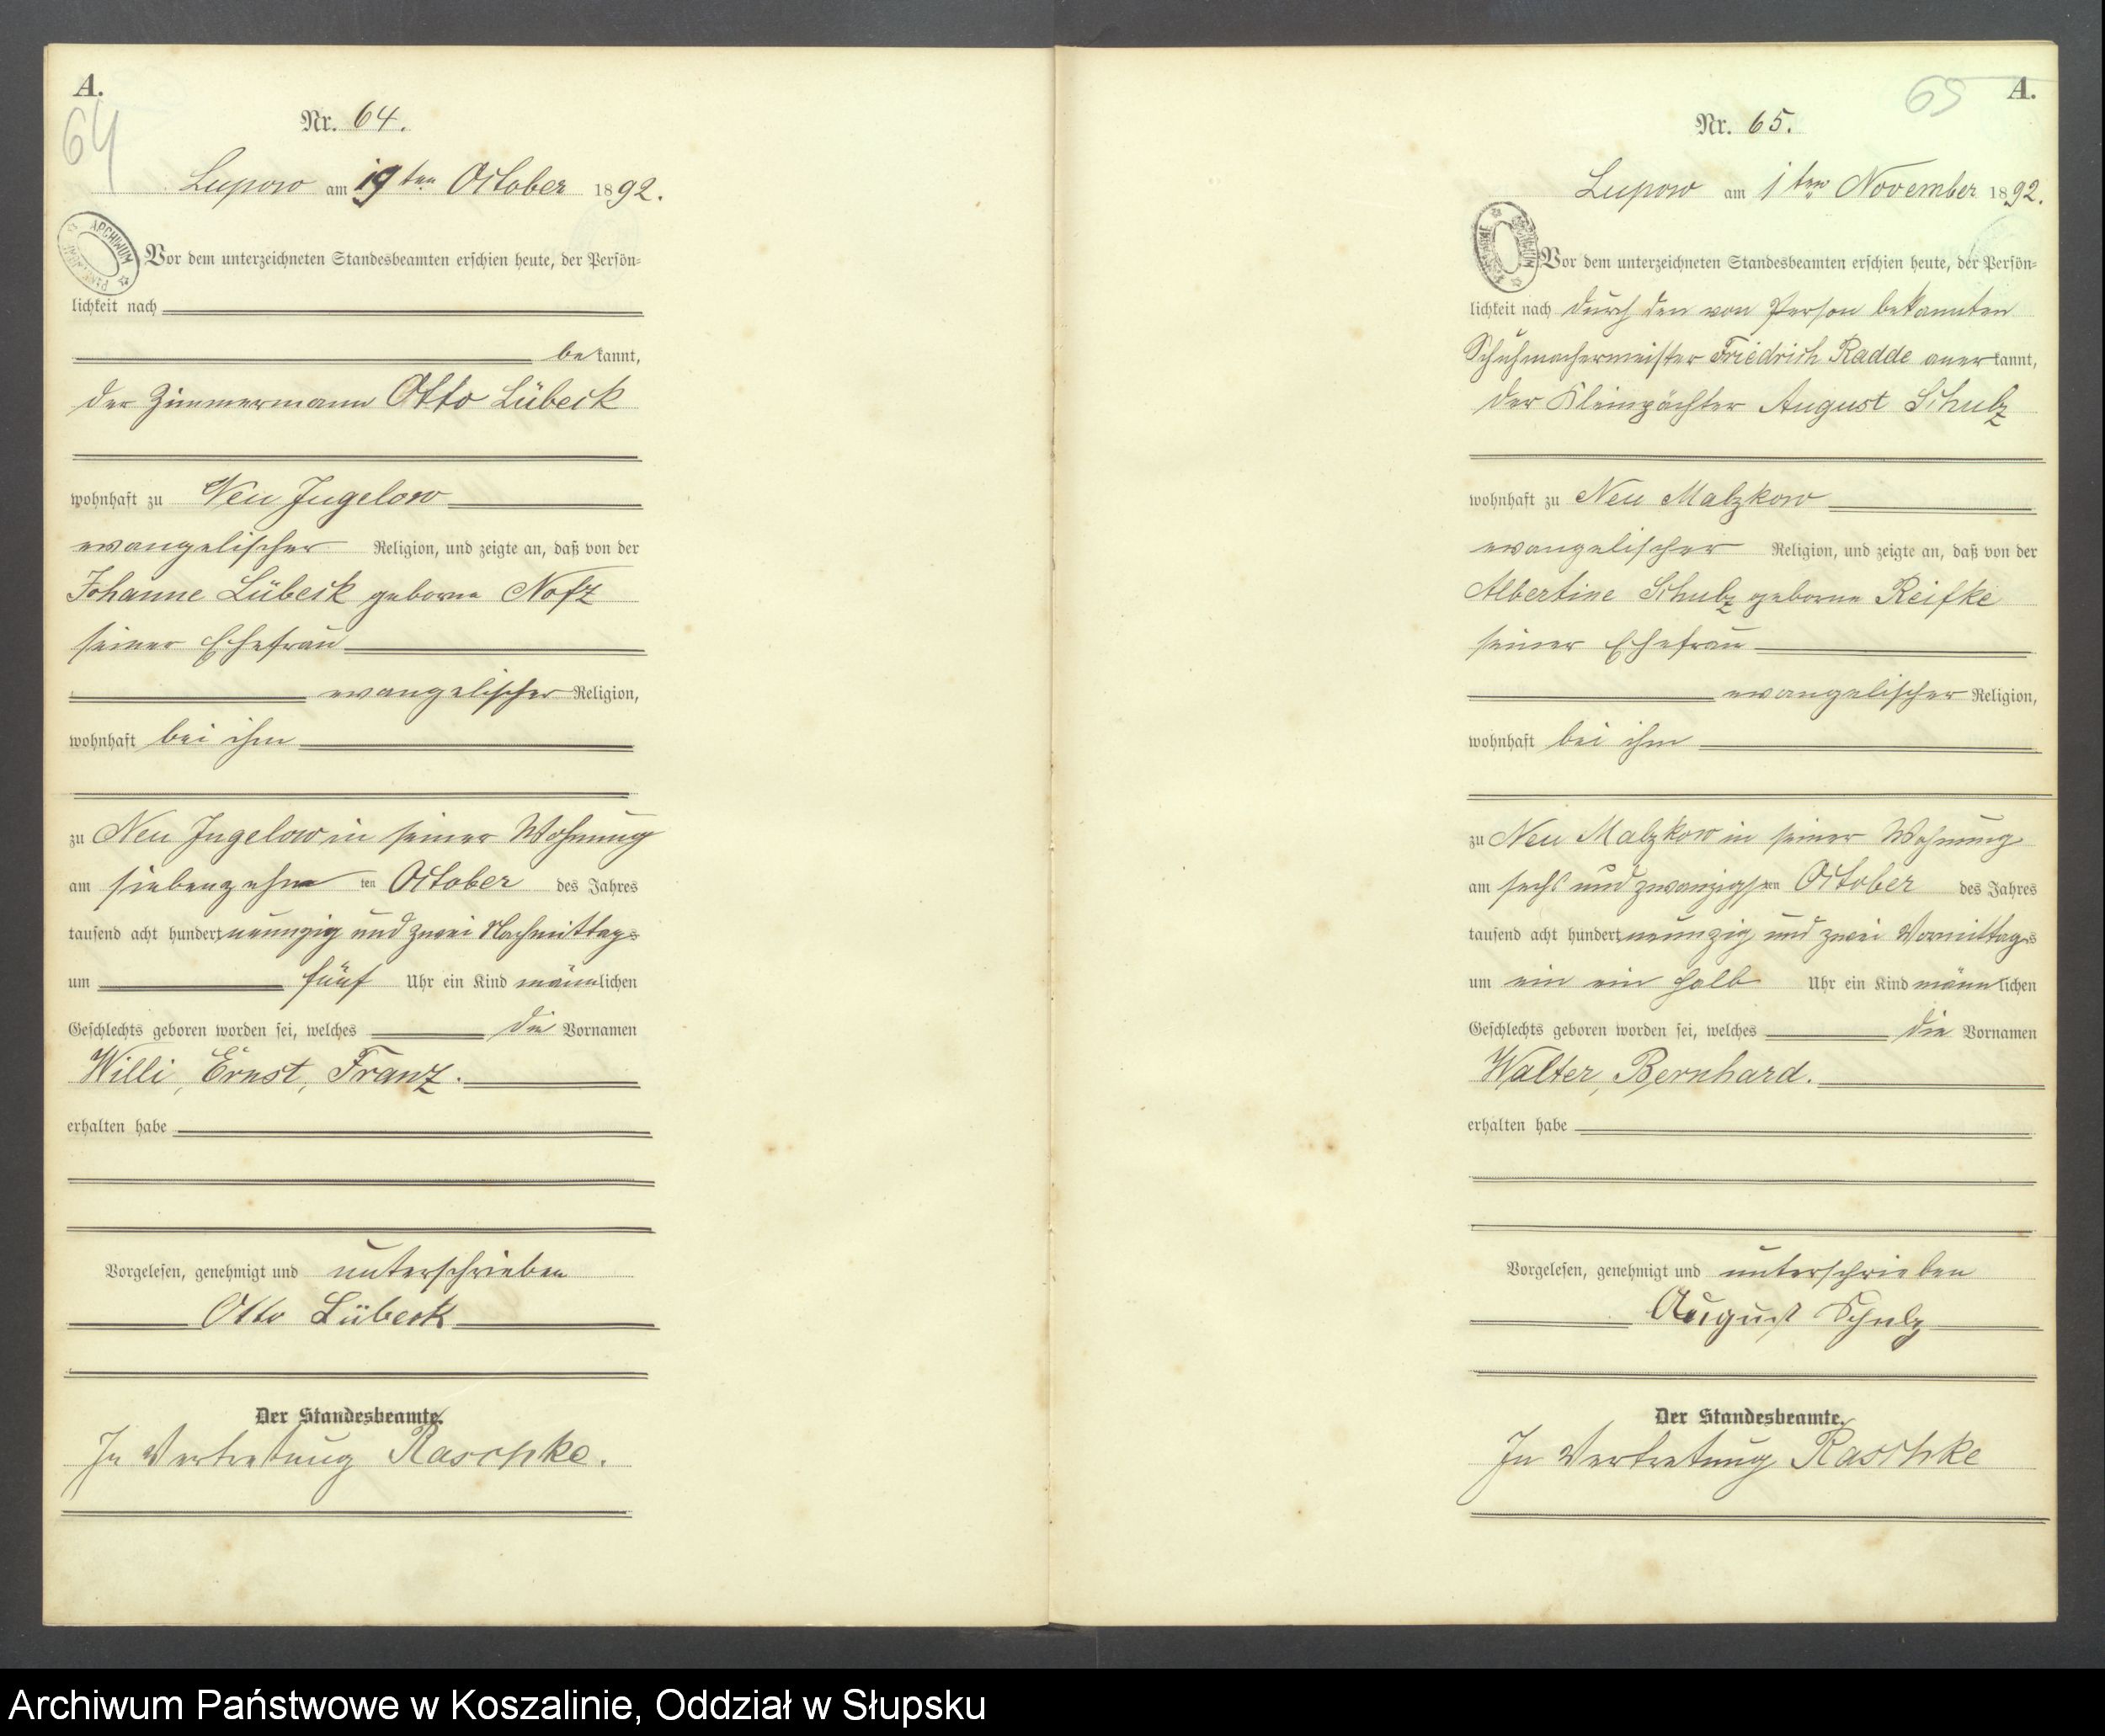 A.
64
Nr. 64.
Lupow am 19ten October 1892.
ARCHIWUM
Vor dem unterzeichneten Standesbeamten erschien heute, der Persön-
lichkeit nach
bekannt,
der Zimmermann Otto Lübeck
wohnhaft zu Neu Jugelow
evangelischer Religion, und zeigte an, daß von der
Johanne Lübeck geborne Notz
seiner Ehefrau
evangelischer Religion,
wohnhaft bei ihm
zu Neu Jugelow in seiner Wohnung
am siebenzehnten October des Jahres
tausend acht hundert neunzig und zwei Nachmittags
um fünf Uhr ein Kind männlichen
Geschlechts geboren worden sei, welches die Vornamen
Willi, Ernst, Franz.
erhalten habe
Vorgelesen, genehmigt und unterschrieben
Otto Lübeck
Der Standesbeamte.
In Vertretung Raschke.
65 A.
Nr. 65.
Lupow am 1ten November 1892.
Vor dem unterzeichneten Standesbeamten erschien heute, der Persön-
lichkeit nach durch den von Person bekannten
Schuhmachermeister Friedrich Radde anerkannt,
der Kleinpächter August Schulz
wohnhaft zu Neu Malzkow
evangelischer Religion, und zeigte an, daß von der
Albertine Schulz geborne Reifke
seiner Ehefrau
evangelischer Religion,
wohnhaft bei ihm
zu Neu Malzkow in seiner Wohnung
am sechs und zwanzigsten October des Jahres
tausend acht hundert neunzig und zwei Vormittags
um ein ein halb Uhr ein Kind männlichen
Geschlechts geboren worden sei, welches die Vornamen
Walter, Bernhard.
erhalten habe
Vorgelesen, genehmigt und unterschrieben
August Schulz
Der Standesbeamte.
In Vertretung Raschke
Archiwum Państwowe w Koszalinie, Oddział w Słupsku